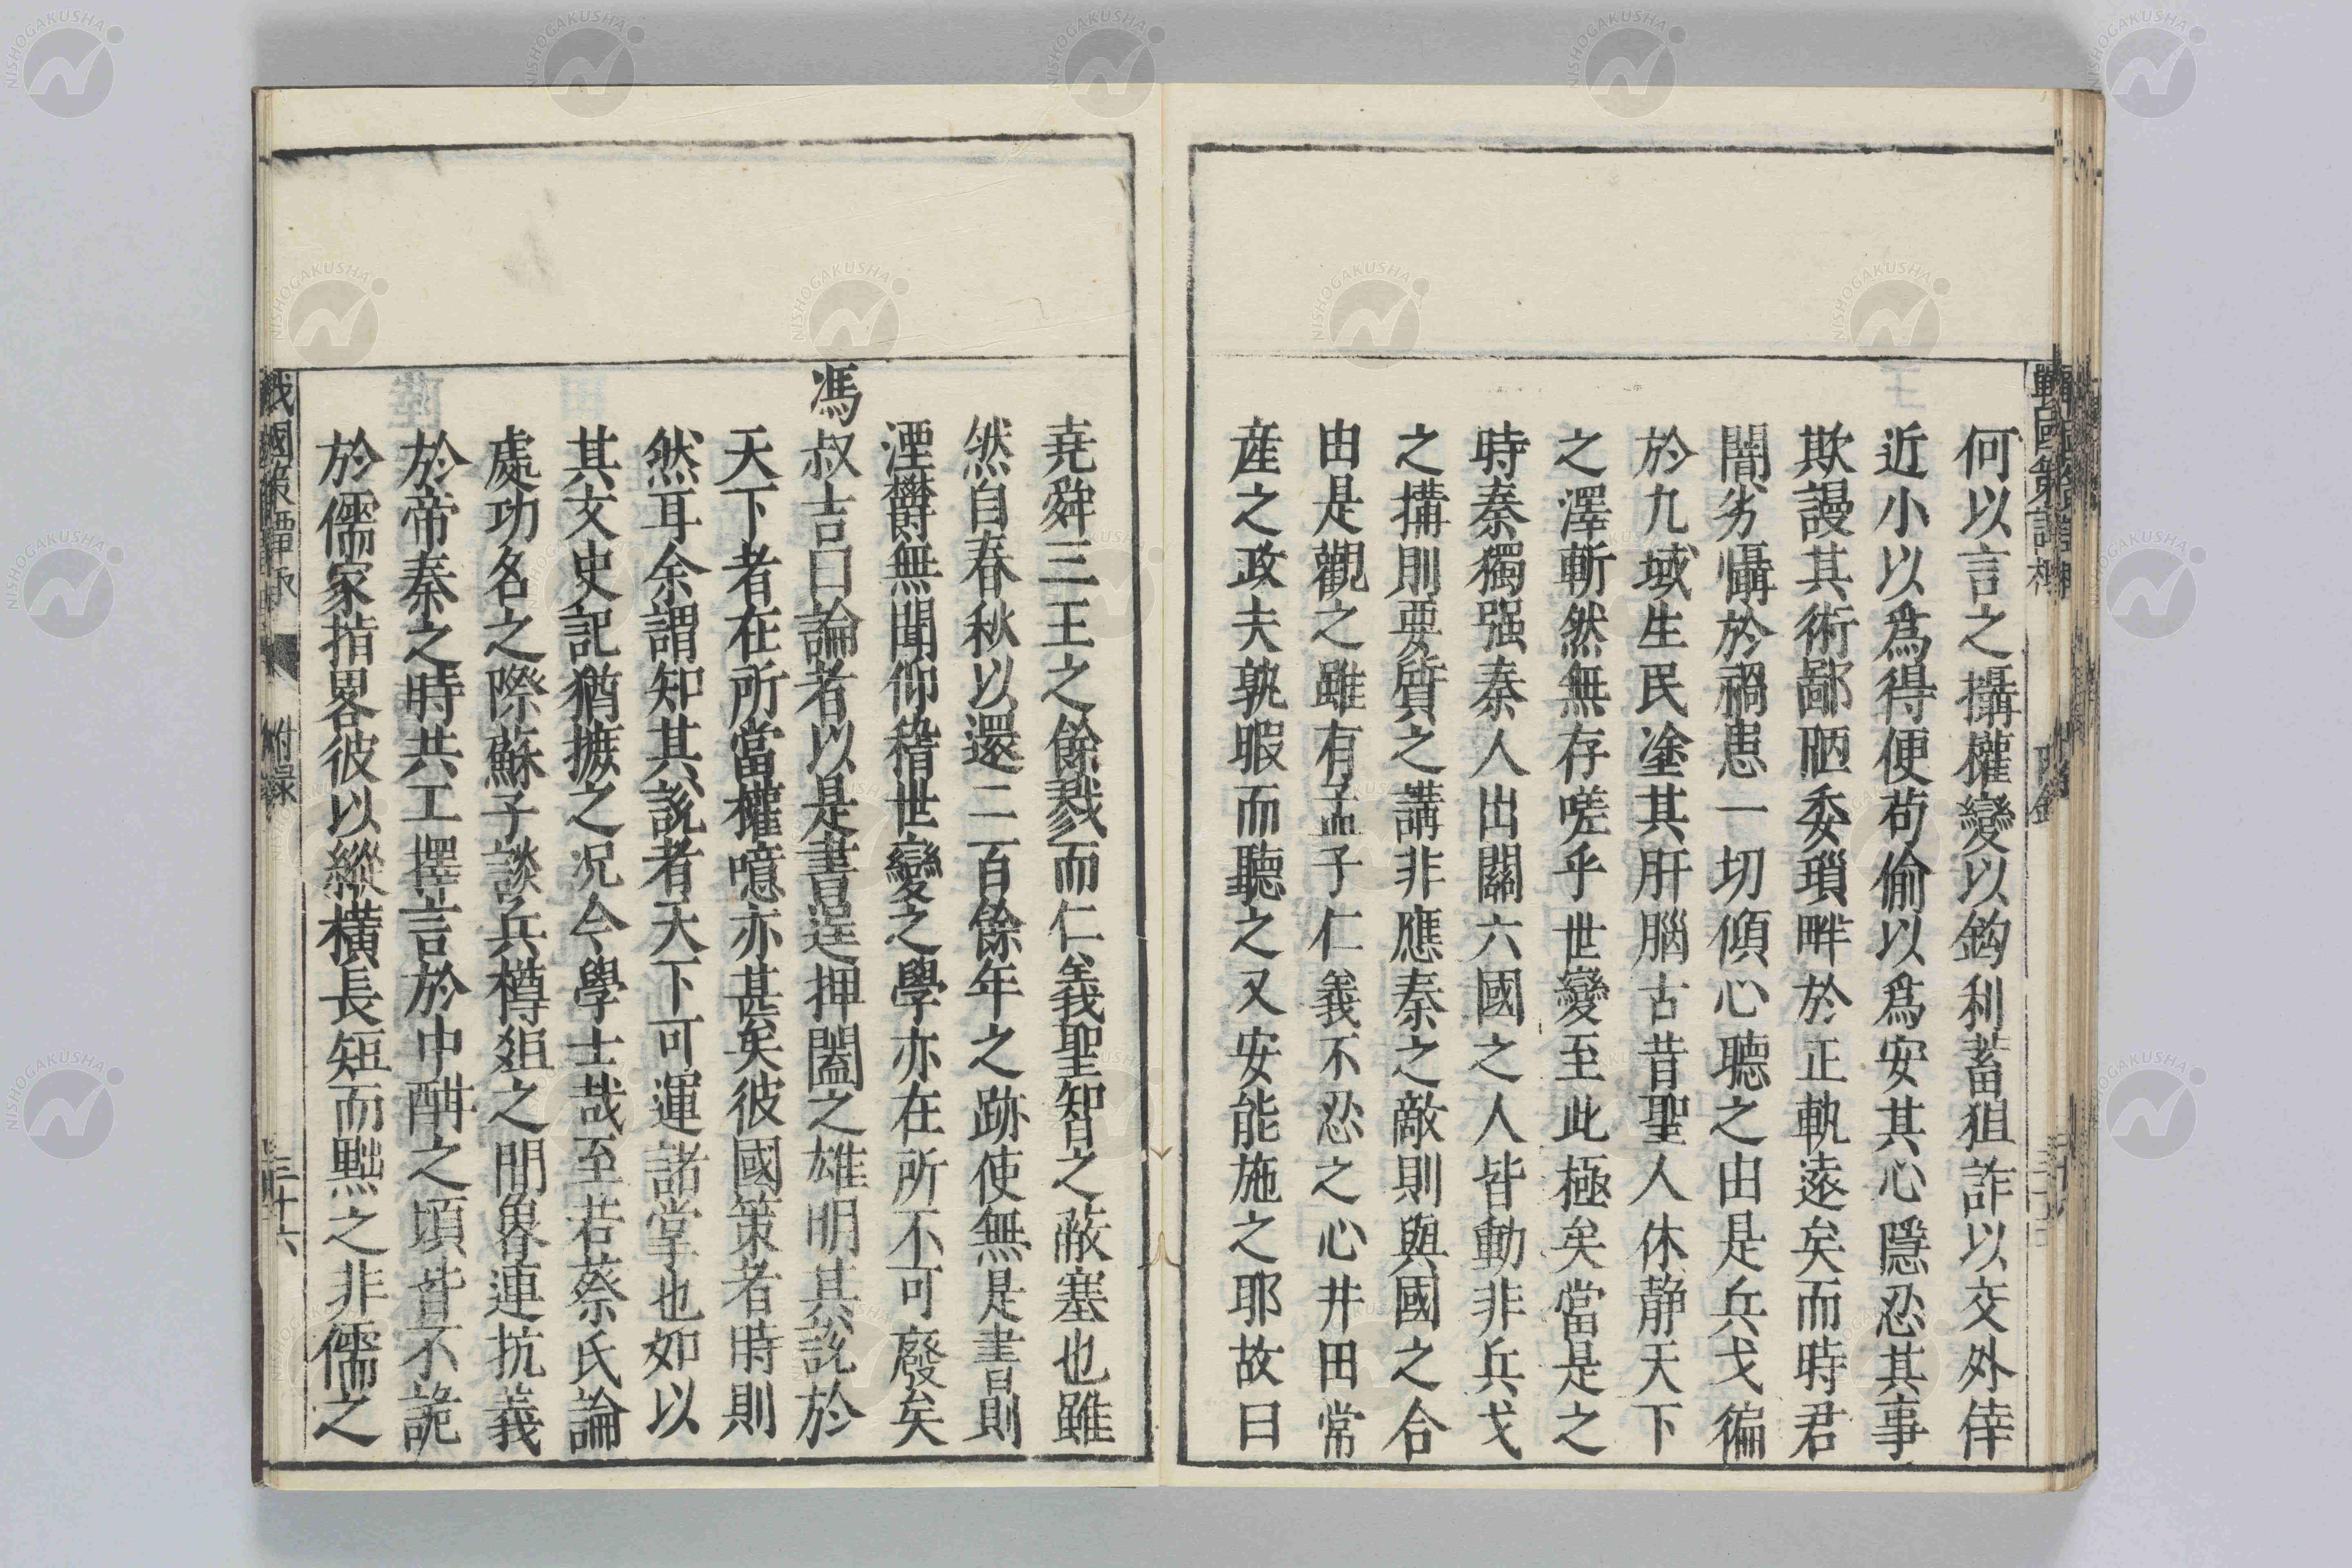 何以言之攝權變以鈎利蓄狙詐以交外倖
近小以爲得便苟偷以爲安其心隱忍其事
欺謾其術鄙陋委瑣畔於正軌遠矣而時君
闇劣懾於禍患一切傾心聽之由是兵戈徧
於九域生民塗其肝腦古昔聖人休静天下
之澤斬然無存嗟乎世變至此極矣當是之
時秦獨强秦人出關六國之人皆動非兵戈
之搆則要質之講非應秦之敵則與國之合
由是觀之雖有孟子仁義不忍之心井田常
産之政夫孰暇而聽之又安能施之耶故曰
堯舜三王之餘戮而仁義聖智之蔽塞也雖
然自春秋以還二百餘年之跡使無是書則
湮欝無聞仰稽世變之學亦在所不可廢矣
馮叔吉曰論者以是書逞押闔之雄明其說於
天下者在所當權噫亦甚矣彼國策者時則
然耳余謂知其說者天下可運諸掌也如以
其文史記猶摭之况今學士哉至若蔡氏論
處功名之際蘇子談兵樽俎之間魯連抗義
於帝秦之時共工擇言於中酣之頃昔不詭
於儒家指畧彼以縱橫長短而黜之非儒之
戰國策譚棷
附録
三十六
NISHOGAKUSHA